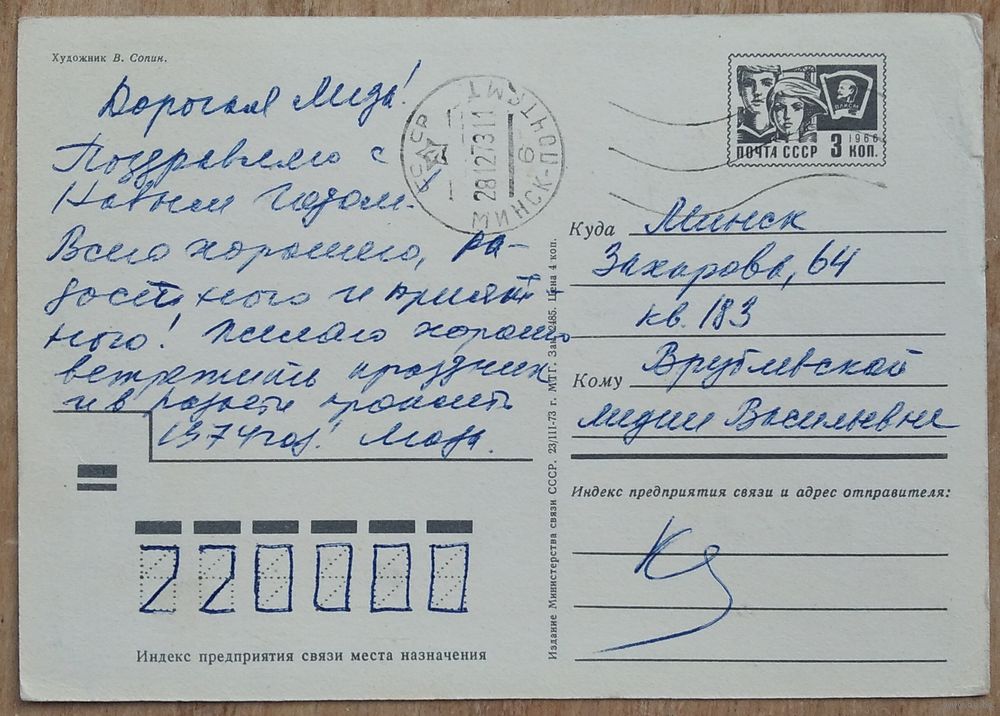 Художник В. Сопин.
Дорогая Лида!
Поздравляю с
Новым Годом.
Всего хорошего, ра-
достного и прият-
ного! Желаю хорошо
встретить праздник
и в радости прожить
1974 год! Люда.
28127311
МИНСК-ПОЧТАМТ
6
ПОЧТА СССР 3 КОП.
1966
ВЛКСМ
Куда Минск
Захарова, 64
кв. 183
Кому Врублевской
Лидии Васильевне
Индекс предприятия связи и адрес отправителя:
220000
Индекс предприятия связи места назначения
Издание Министерства связи СССР. 23/III-73 г. МТГ. Зак. 2485. Цена 4 коп.